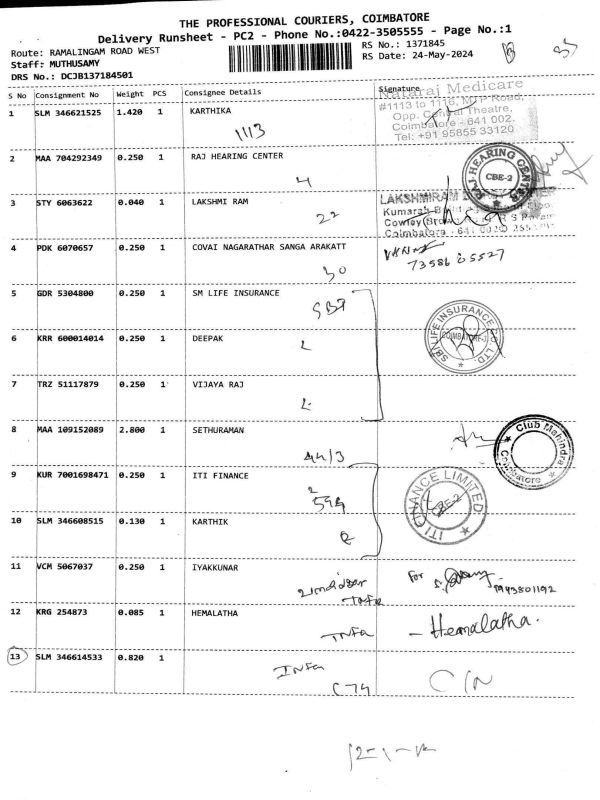 THE PROFESSIONAL COURIERS, COIMBATORE
Delivery Runsheet - PC2 - Phone No.:0422-3505555 - Page No.:1
Route: RAMALINGAM ROAD WEST
Staff: MUTHUSAMY
DRS No.: DCJB137184501
RS No.: 1371845
RS Date: 24-May-2024
S No Consignment No Weight PCS Consignee Details Signature
1 SLM 346621525 1.420 1 KARTHIKA
1113
Nataraj Medicare
#1113 to 1116, M.T.P Road,
Opp. Central Theatre,
Coimbatore - 641 002.
Tel: +91 95855 33120
2 MAA 704292349 0.250 1 RAJ HEARING CENTER
4
RAJ HEARING CENTER
CBE-2
3 STY 6063622 0.040 1 LAKSHMI RAM
22
LAKSHMIRAM
Coimbatore - 641 002
4 PDK 6070657 0.250 1 COVAI NAGARATHAR SANGA ARAKATT
30
5 GDR 5304800 0.250 1 SM LIFE INSURANCE
SBI
SBI LIFE INSURANCE CO. LTD
6 KRR 600014014 0.250 1 DEEPAK
7 TRZ 51117879 0.250 1 VIJAYA RAJ
8 MAA 109152089 2.800 1 SETHURAMAN
44/3
Club Mahindra
Coimbatore
9 KUR 7001698471 0.250 1 ITI FINANCE
594
ITI FINANCE LIMITED
CBE-2
10 SLM 346608515 0.130 1 KARTHIK
11 VCM 5067037 0.250 1 IYAKKUNAR
For
9943801192
12 KRG 254873 0.085 1 HEMALATHA
- Hemalatha.
13 SLM 346614533 0.820 1
C74
C/N